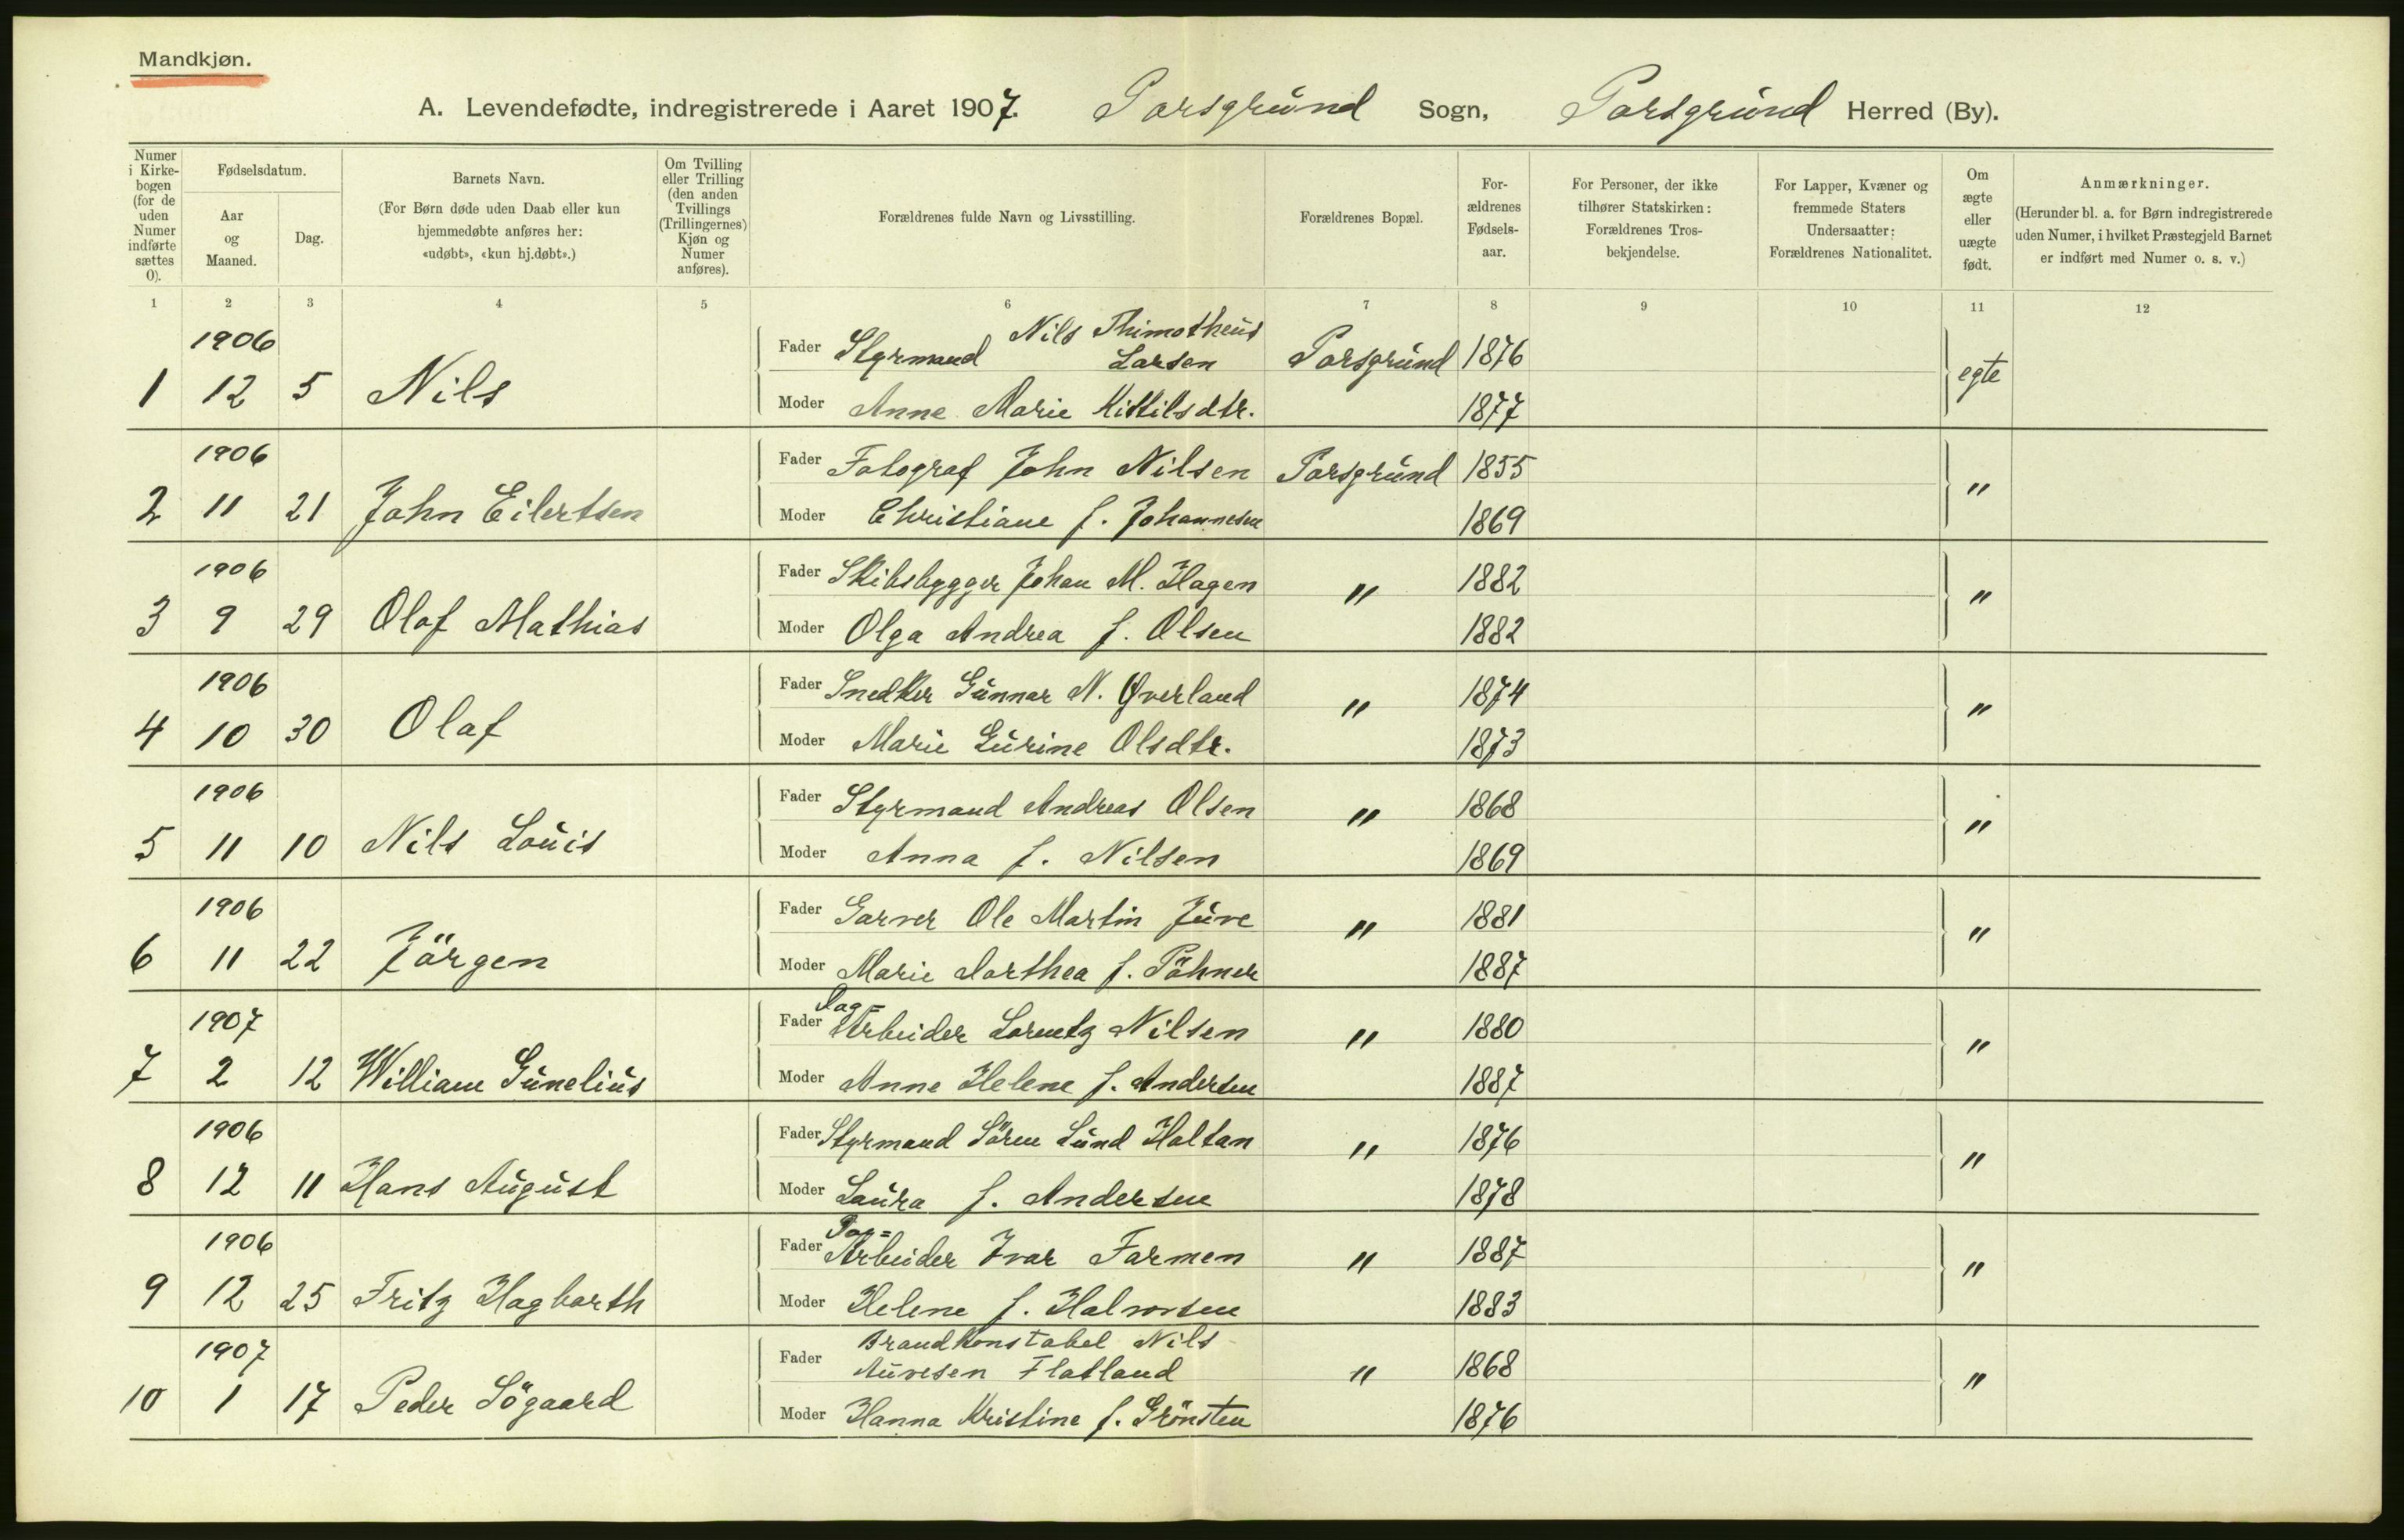 Mandkjøn.
A. Levendefødte, indregistrerede i Aaret 1907. Porsgrund Sogn, Porsgrund Herred (By).
Numer i Kirkebogen (for de uden Numer indførte sættes 0).
Fødselsdatum.
Aar og Maaned.
Dag.
Barnets Navn.
(For Børn døde uden Daab eller kun
hjemmedøbte anføres her:
«udøbt», «kun hj.døbt».)
Om Tvilling
eller Trilling
(den anden
Tvillings
(Trillingernes)
Kjøn og
Numer
anføres).
Forældrenes fulde Navn og Livsstilling.
Forældrenes Bopæl.
For-
ældrenes
Fødsels-
aar.
For Personer, der ikke
tilhører Statskirken:
Forældrenes Tros-
bekjendelse.
For Lapper, Kvæner og
fremmede Staters
Undersaatter:
Forældrenes Nationalitet.
Om
ægte
eller
uægte
født.
Anmærkninger.
(Herunder bl. a. for Børn indregistrerede
uden Numer, i hvilket Præstegjeld Barnet
er indført med Numer o. s. v.)
1 2 3 4 5 6 7 8 9 10 11 12
1906 Fader Styrmand Nils Thimotheus Larsen Porsgrund 1876
1 12 5 Nils egte
Moder Anne Marie Kittilsdtr. 1877
1906 Fader Fotograf John Nilsen Porsgrund 1855
2 11 21 John Eilertsen "
Moder Christiane f. Johannesen 1869
1906 Fader Skibsbygger Johan M. Hagen " 1882
3 9 29 Olaf Mathias "
Moder Olga Andrea f. Olsen 1882
1906 Fader Snedker Gunnar N. Øverland " 1874
4 10 30 Olaf "
Moder Marie Gurine Olsdtr. 1873
1906 Fader Styrmand Andreas Olsen " 1868
5 11 10 Nils Louis "
Moder Anna f. Nilsen 1869
1906 Fader Garver Ole Martin Juve " 1881
6 11 22 Jörgen "
Moder Marie Dorthea f. Pöhner 1887
1907 Fader Dag-Arbeider Lorentz Nilsen " 1880
7 2 12 William Gunelius "
Moder Anne Helene f. Andersen 1887
1906 Fader Styrmand Sören Lund Holtan " 1876
8 12 11 Hans August "
Moder Laura f. Andersen 1878
1906 Fader Dag=Arbeider Ivar Farmen " 1887
9 12 25 Fritz Hagbarth "
Moder Helene f. Halvorsen 1883
1907 Fader Brandkonstabel Nils
Auvesen Flatland " 1868
10 1 17 Peder Sögaard "
Moder Hanna Kristine f. Grönsten 1876